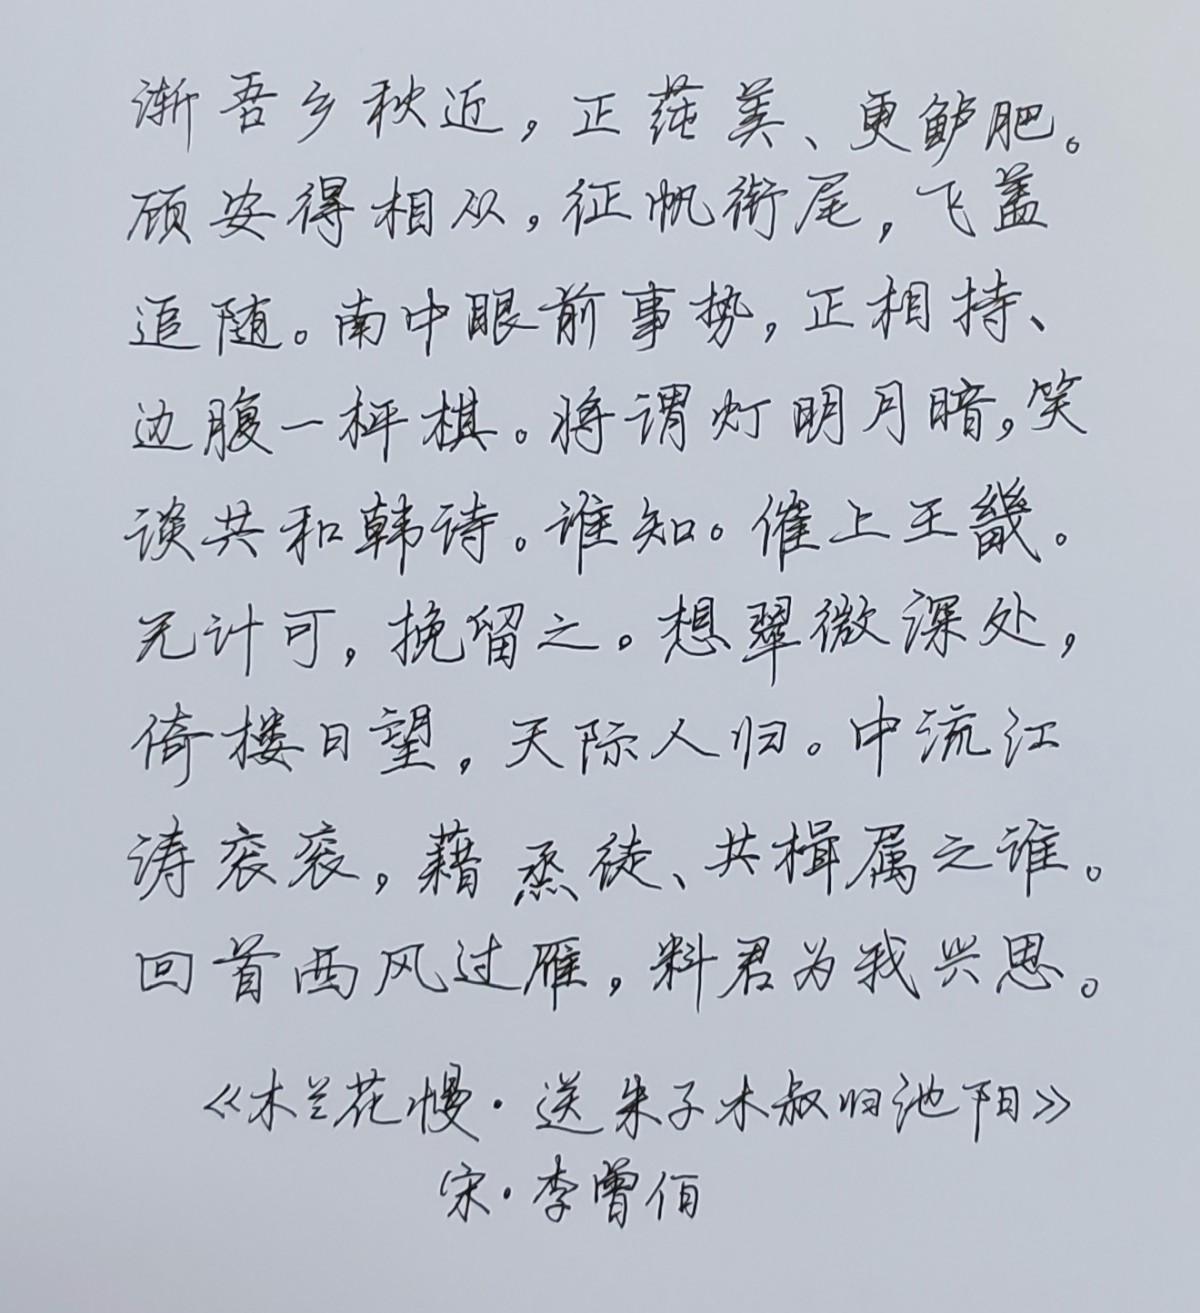 渐吾乡秋近，正莼美、更鲈肥。
顾安得相从，征帆衔尾，飞盖
追随。南中眼前事势，正相持、
边腹一枰棋。将谓灯明月暗，笑
谈共和韩诗。谁知。催上王畿。
无计可，挽留之。想翠微深处，
倚楼日望，天际人归。中流江
涛衮衮，藉烝徒、共楫属之谁。
回首西风过雁，料君为我兴思。
《木兰花慢·送朱子木叔归池阳》
宋·李曾伯